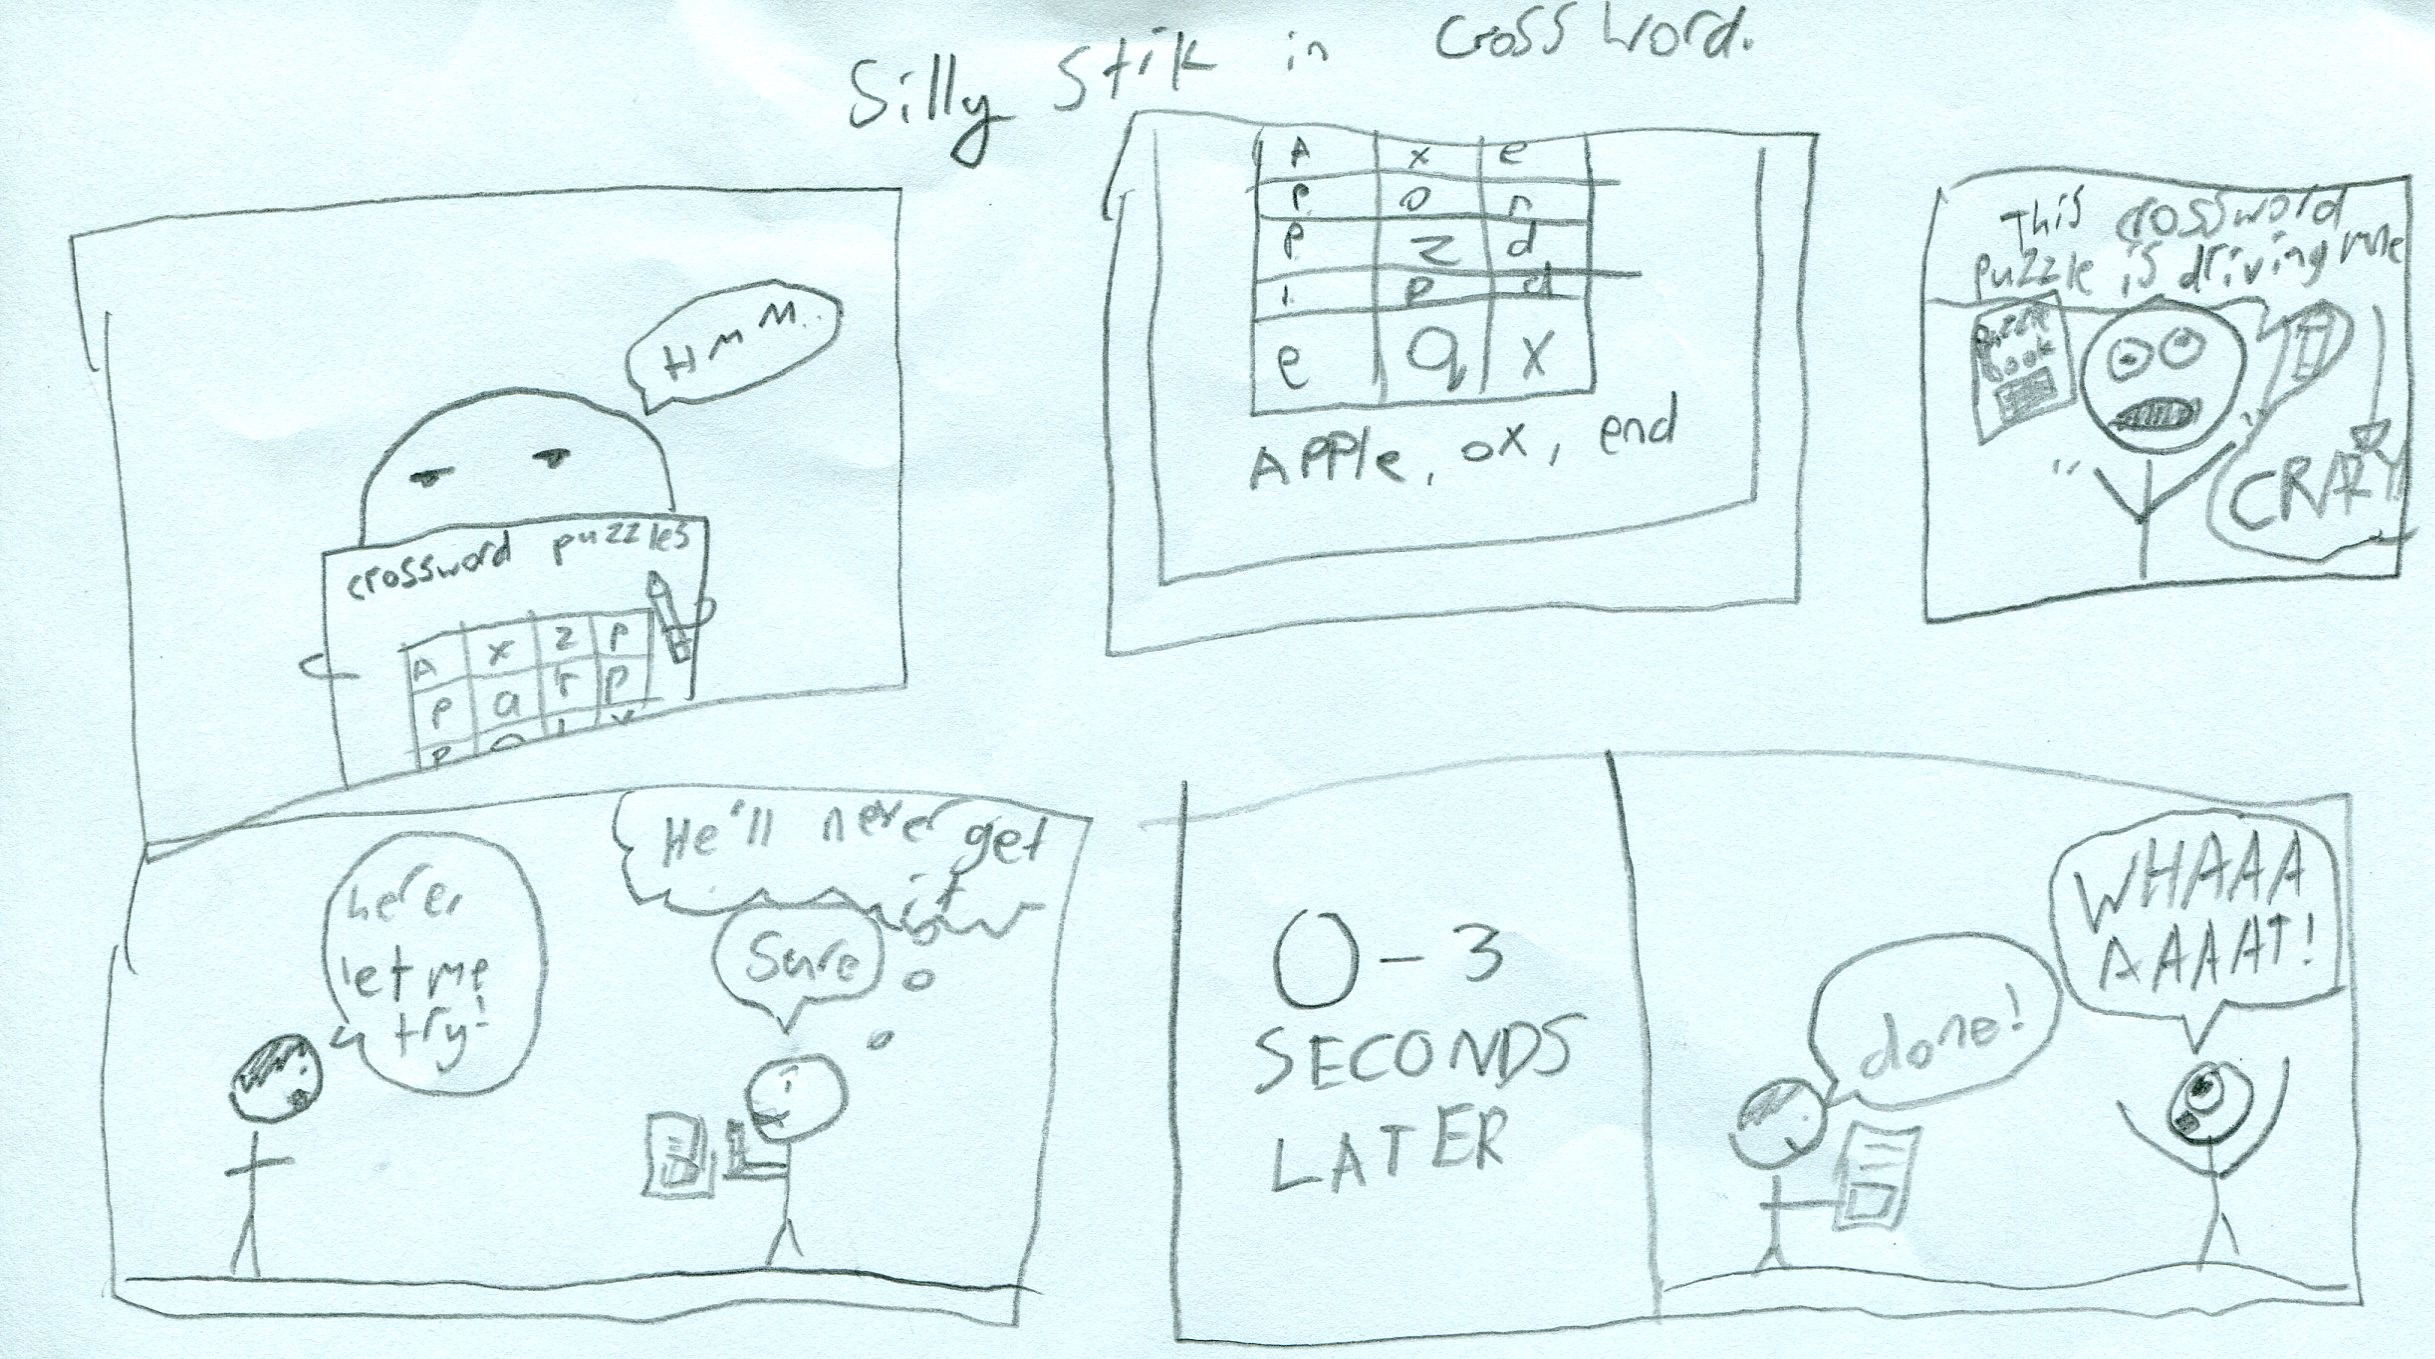 Silly Stik in Crossword.
HMMM..
crossword puzzles
A x z p
P a r p
P
A x e
P o n
P z d
l p d
e Q x
APPle, ox, end
This crossword
puzzle is driving me
CRAZY!
puzzle
book
here,
let me
try!
He'll never get
it
Sure
0-3
SECONDS
LATER
done!
WHAAA
AAAAT!